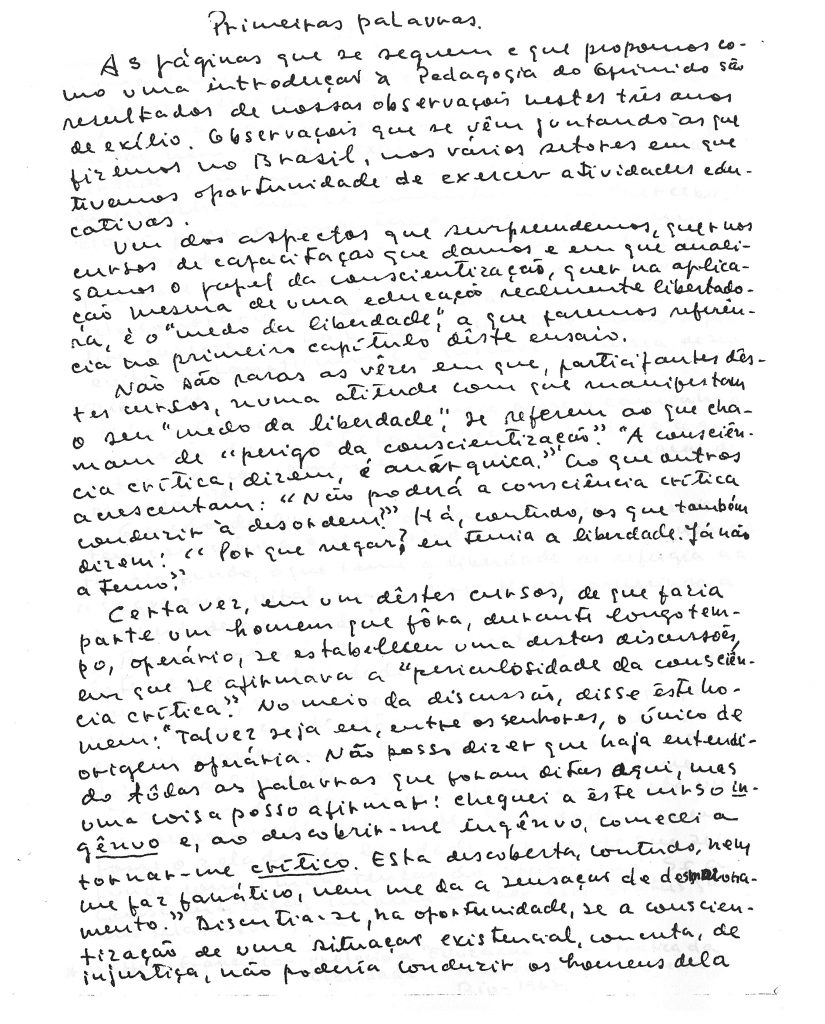 Primeiras palavras.
As páginas que se seguem e que propomos co-
mo uma introdução à Pedagogia do Oprimido são
resultados de nossas observações nestes três anos
de exílio. Observações que se vêm juntando às que
fizemos no Brasil, nos vários setores em que
tivemos oportunidade de exercer atividades edu-
cativas.
Um dos aspectos que surpreendemos, quer nos
cursos de capacitação que damos e em que anali-
samos o papel da conscientização, quer na aplica-
ção mesma de uma educação realmente libertado-
ra, é o "medo da liberdade", a que faremos referên-
cia no primeiro capítulo dêste ensaio.
Não são raras as vêzes em que, participantes dês-
tes cursos, numa atitude com que manifestam
o seu "medo da liberdade", se referem ao que cha-
mam de "perigo da conscientização". "A consciên-
cia crítica, dizem, é anárquica." Ao que outros
acrescentam: "Não poderá a consciência crítica
conduzir à desordem?" Há, contudo, os que também
dizem: "Por que negar? eu temia a liberdade. Já não
a temo."
Certa vez, em um dêstes cursos, de que fazia
parte um homem que fôra, durante longo tem-
po, operário, se estabeleceu uma destas discussões,
em que se afirmava a "periculosidade da consciên-
cia crítica." No meio da discussão, disse êste ho-
mem: "Talvez seja eu, entre os senhores, o único de
origem operária. Não posso dizer que haja entendi-
do tôdas as palavras que foram ditas aqui, mas
uma coisa posso afirmar: cheguei a êste curso in-
gênuo e, ao descobrir-me ingênuo, comecei a
tornar-me crítico. Esta descoberta, contudo, nem
me faz fanático, nem me da a sensação de desmorona-
mento." Discutia-se, na oportunidade, se a conscien-
tização de uma situação existencial, concreta, de
injustiça, não poderia conduzir os homens dela